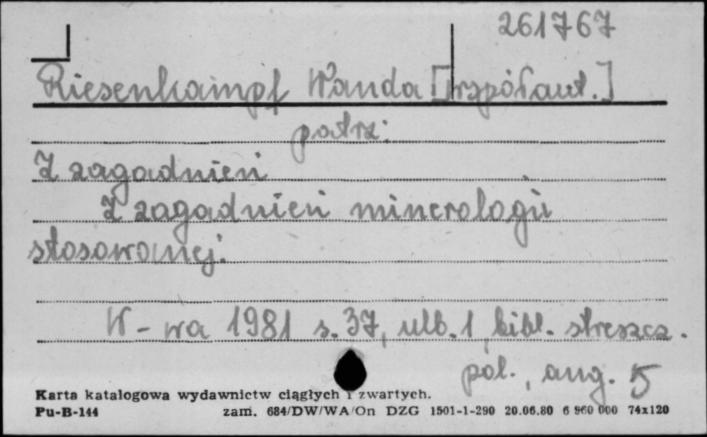 261767
Riesenkampf Wanda [współaut.]
patrz:
Z zagadnień
Z zagadnień minerologii
stosowanej.
W-wa 1981 s. 37, ulb. 1, bibl. streszcz.
pol., ang. 5
Karta katalogowa wydawnictw ciągłych i zwartych.
Pu-B-144 zam. 684/DW/WA/On DZG 1501-1-290 20.06.80 6 960 000 74x120